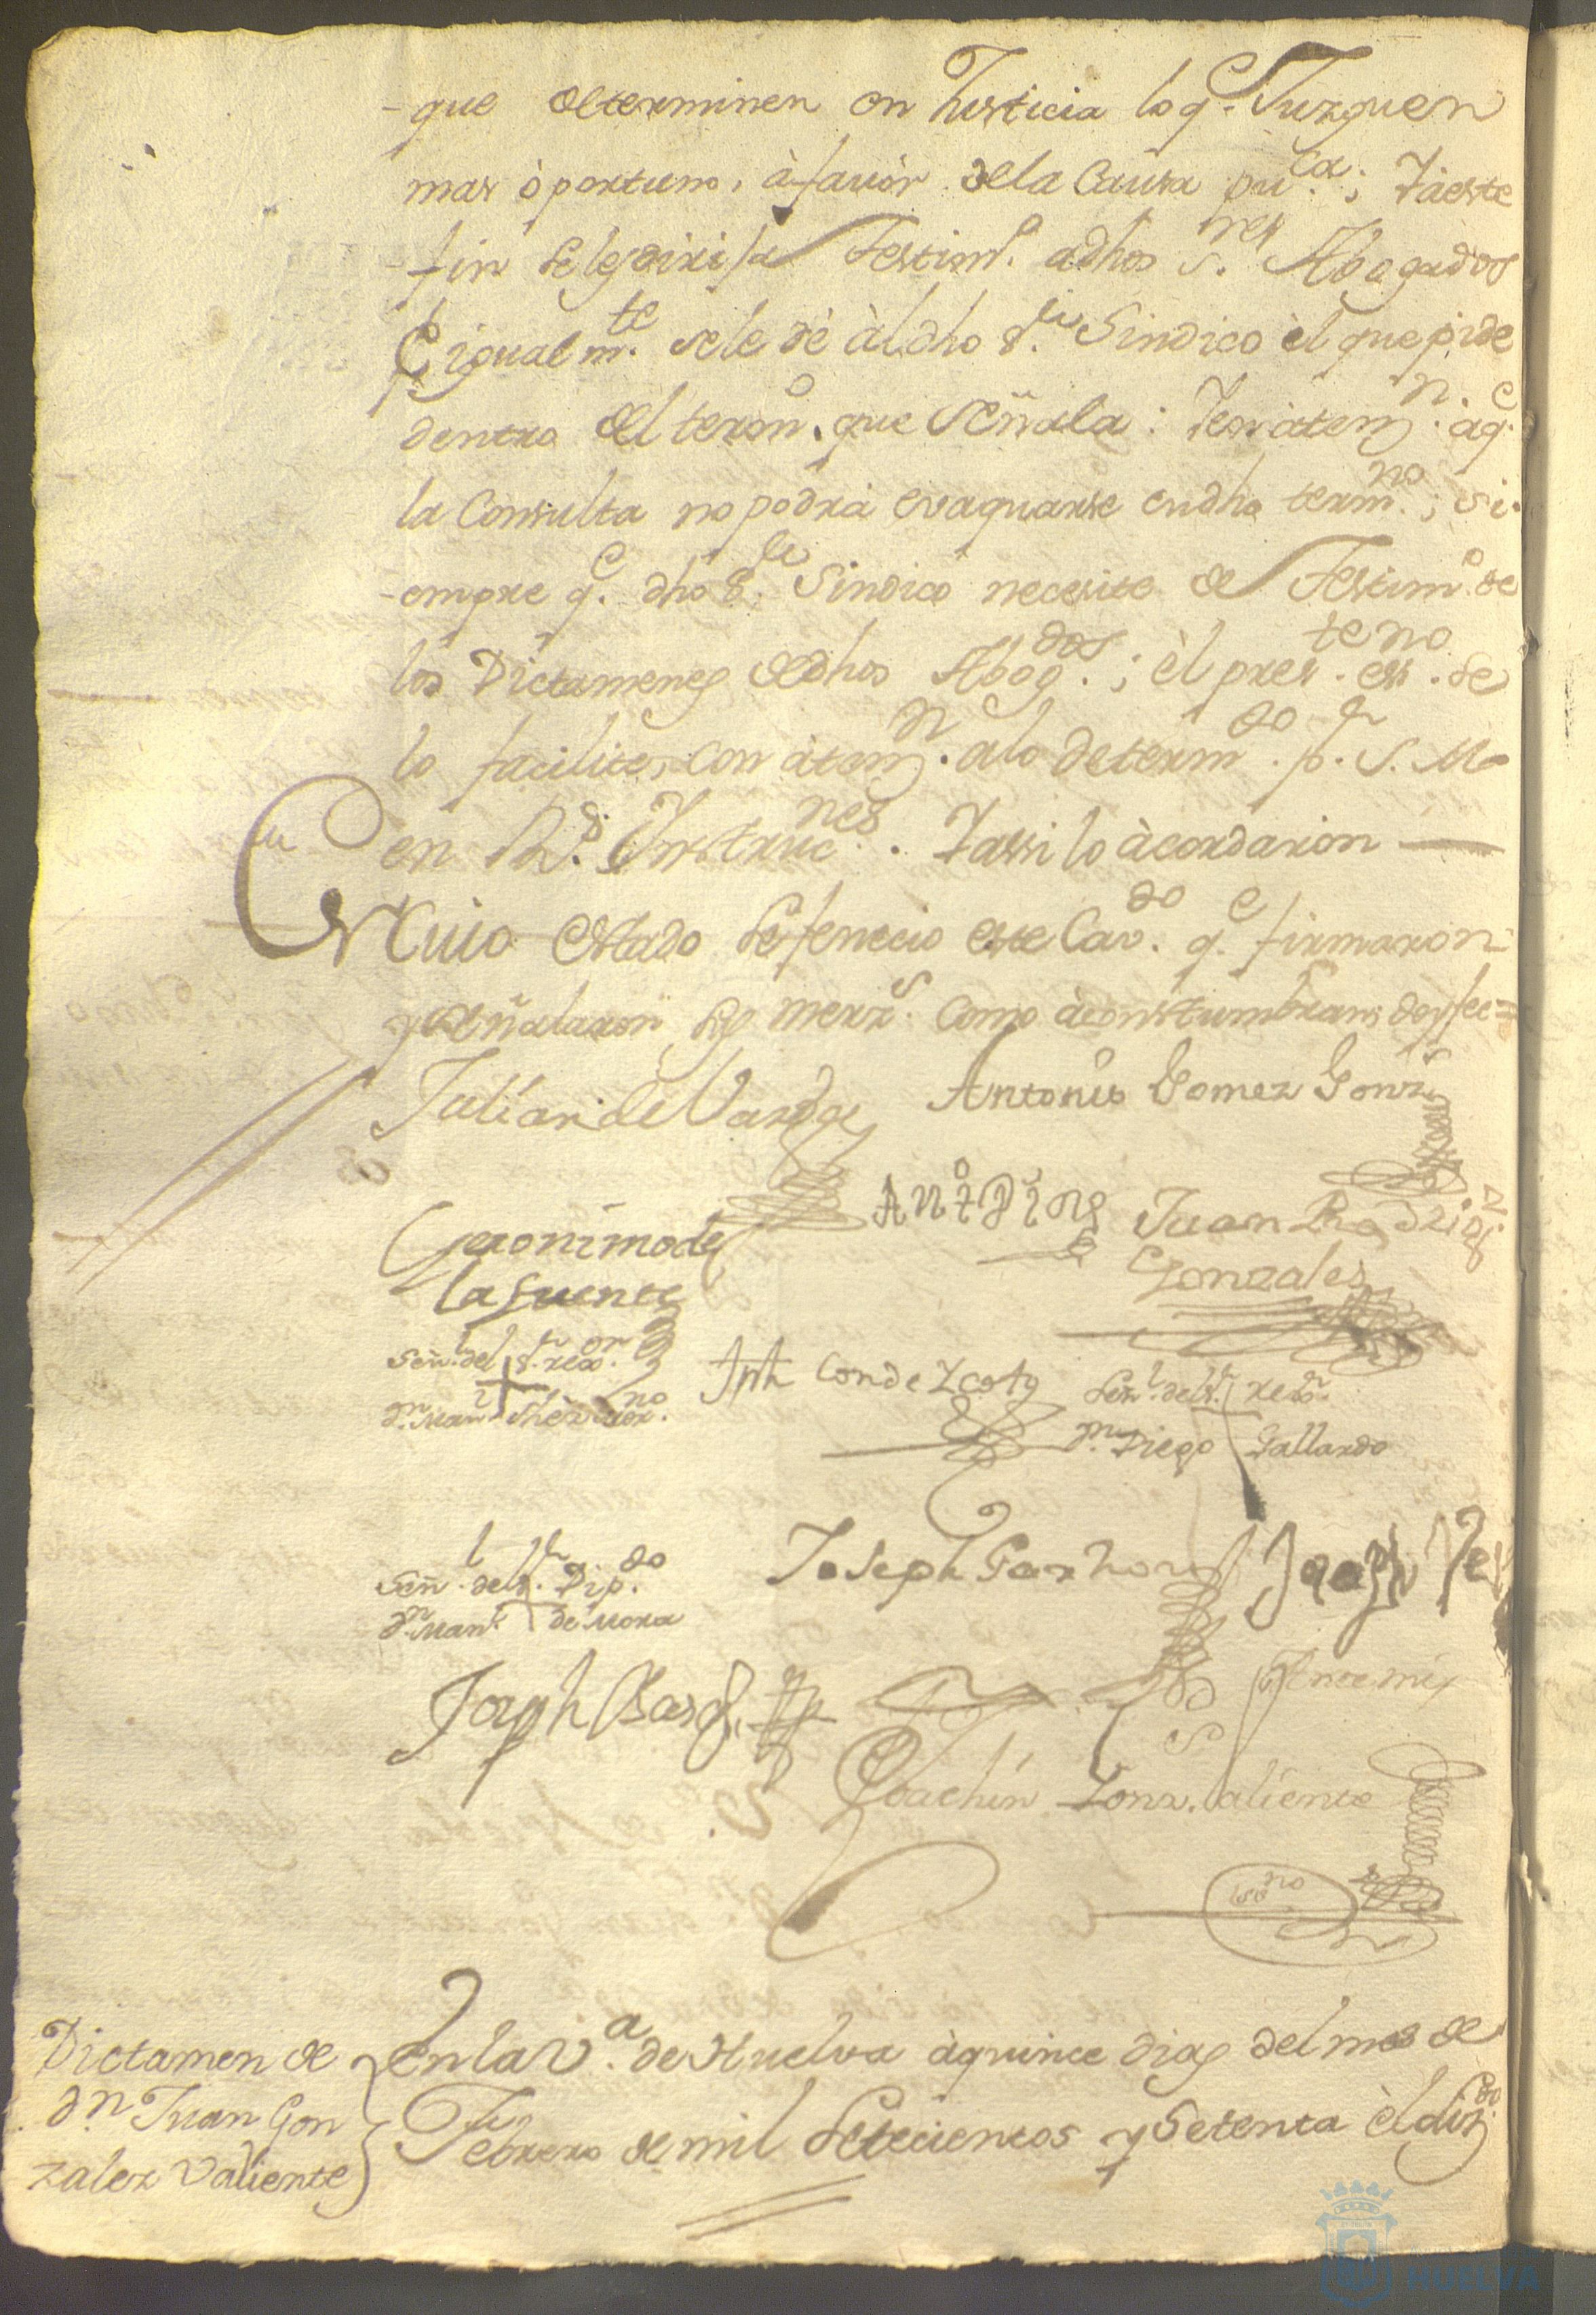 que determinen en Justicia lo q.e Juzguen
mas òportuno, à favòr dela Causa pu.ca; Y à este
fin se les dirija Testim.o adhos S.res Abogados
è igualm.te sele dè àl dho S.r Sindico èl que pide
dentro del term.o que señala: Y en àten.n àq.e
la Consulta no podrà evaquarse en dho term.no; si-
-empre q.e dho S.r Sindico necesite de Testim.o de
los Dictamenes de dhos Abog.dos; èl pres.te es.no se
lo facilite, con àten.n alo determ.do p.r S. M.
en R.l Instruc.nes. Y assi lo àcordaron
En Cuio estado se fenecio este Cav.do q.e firmaron
y señalaron sus merz.s como àcostumbran, doy fee=
Julian de
Antonio Gomez Gonz.s
Geronimo de
la fuente
Juan Rodrig.z
Gonzales
Señ.l del S.r rex.or
d.n Man.l
Conde
Señ.l del S.r rex.or
d.n Diego Gallardo
Señ.l del S.r Dip.do
d.n Man.l de Mora
Joseph Garzon
Joseph
Ante mi
Joachin Gonz. Valiente
es.no
Dictamen de
d.n Juan Gon
zalez Valiente
En la V.a de Huelva à quince dias del mes de
Febrero de mil Setecientos y Setenta èl
HUELVA